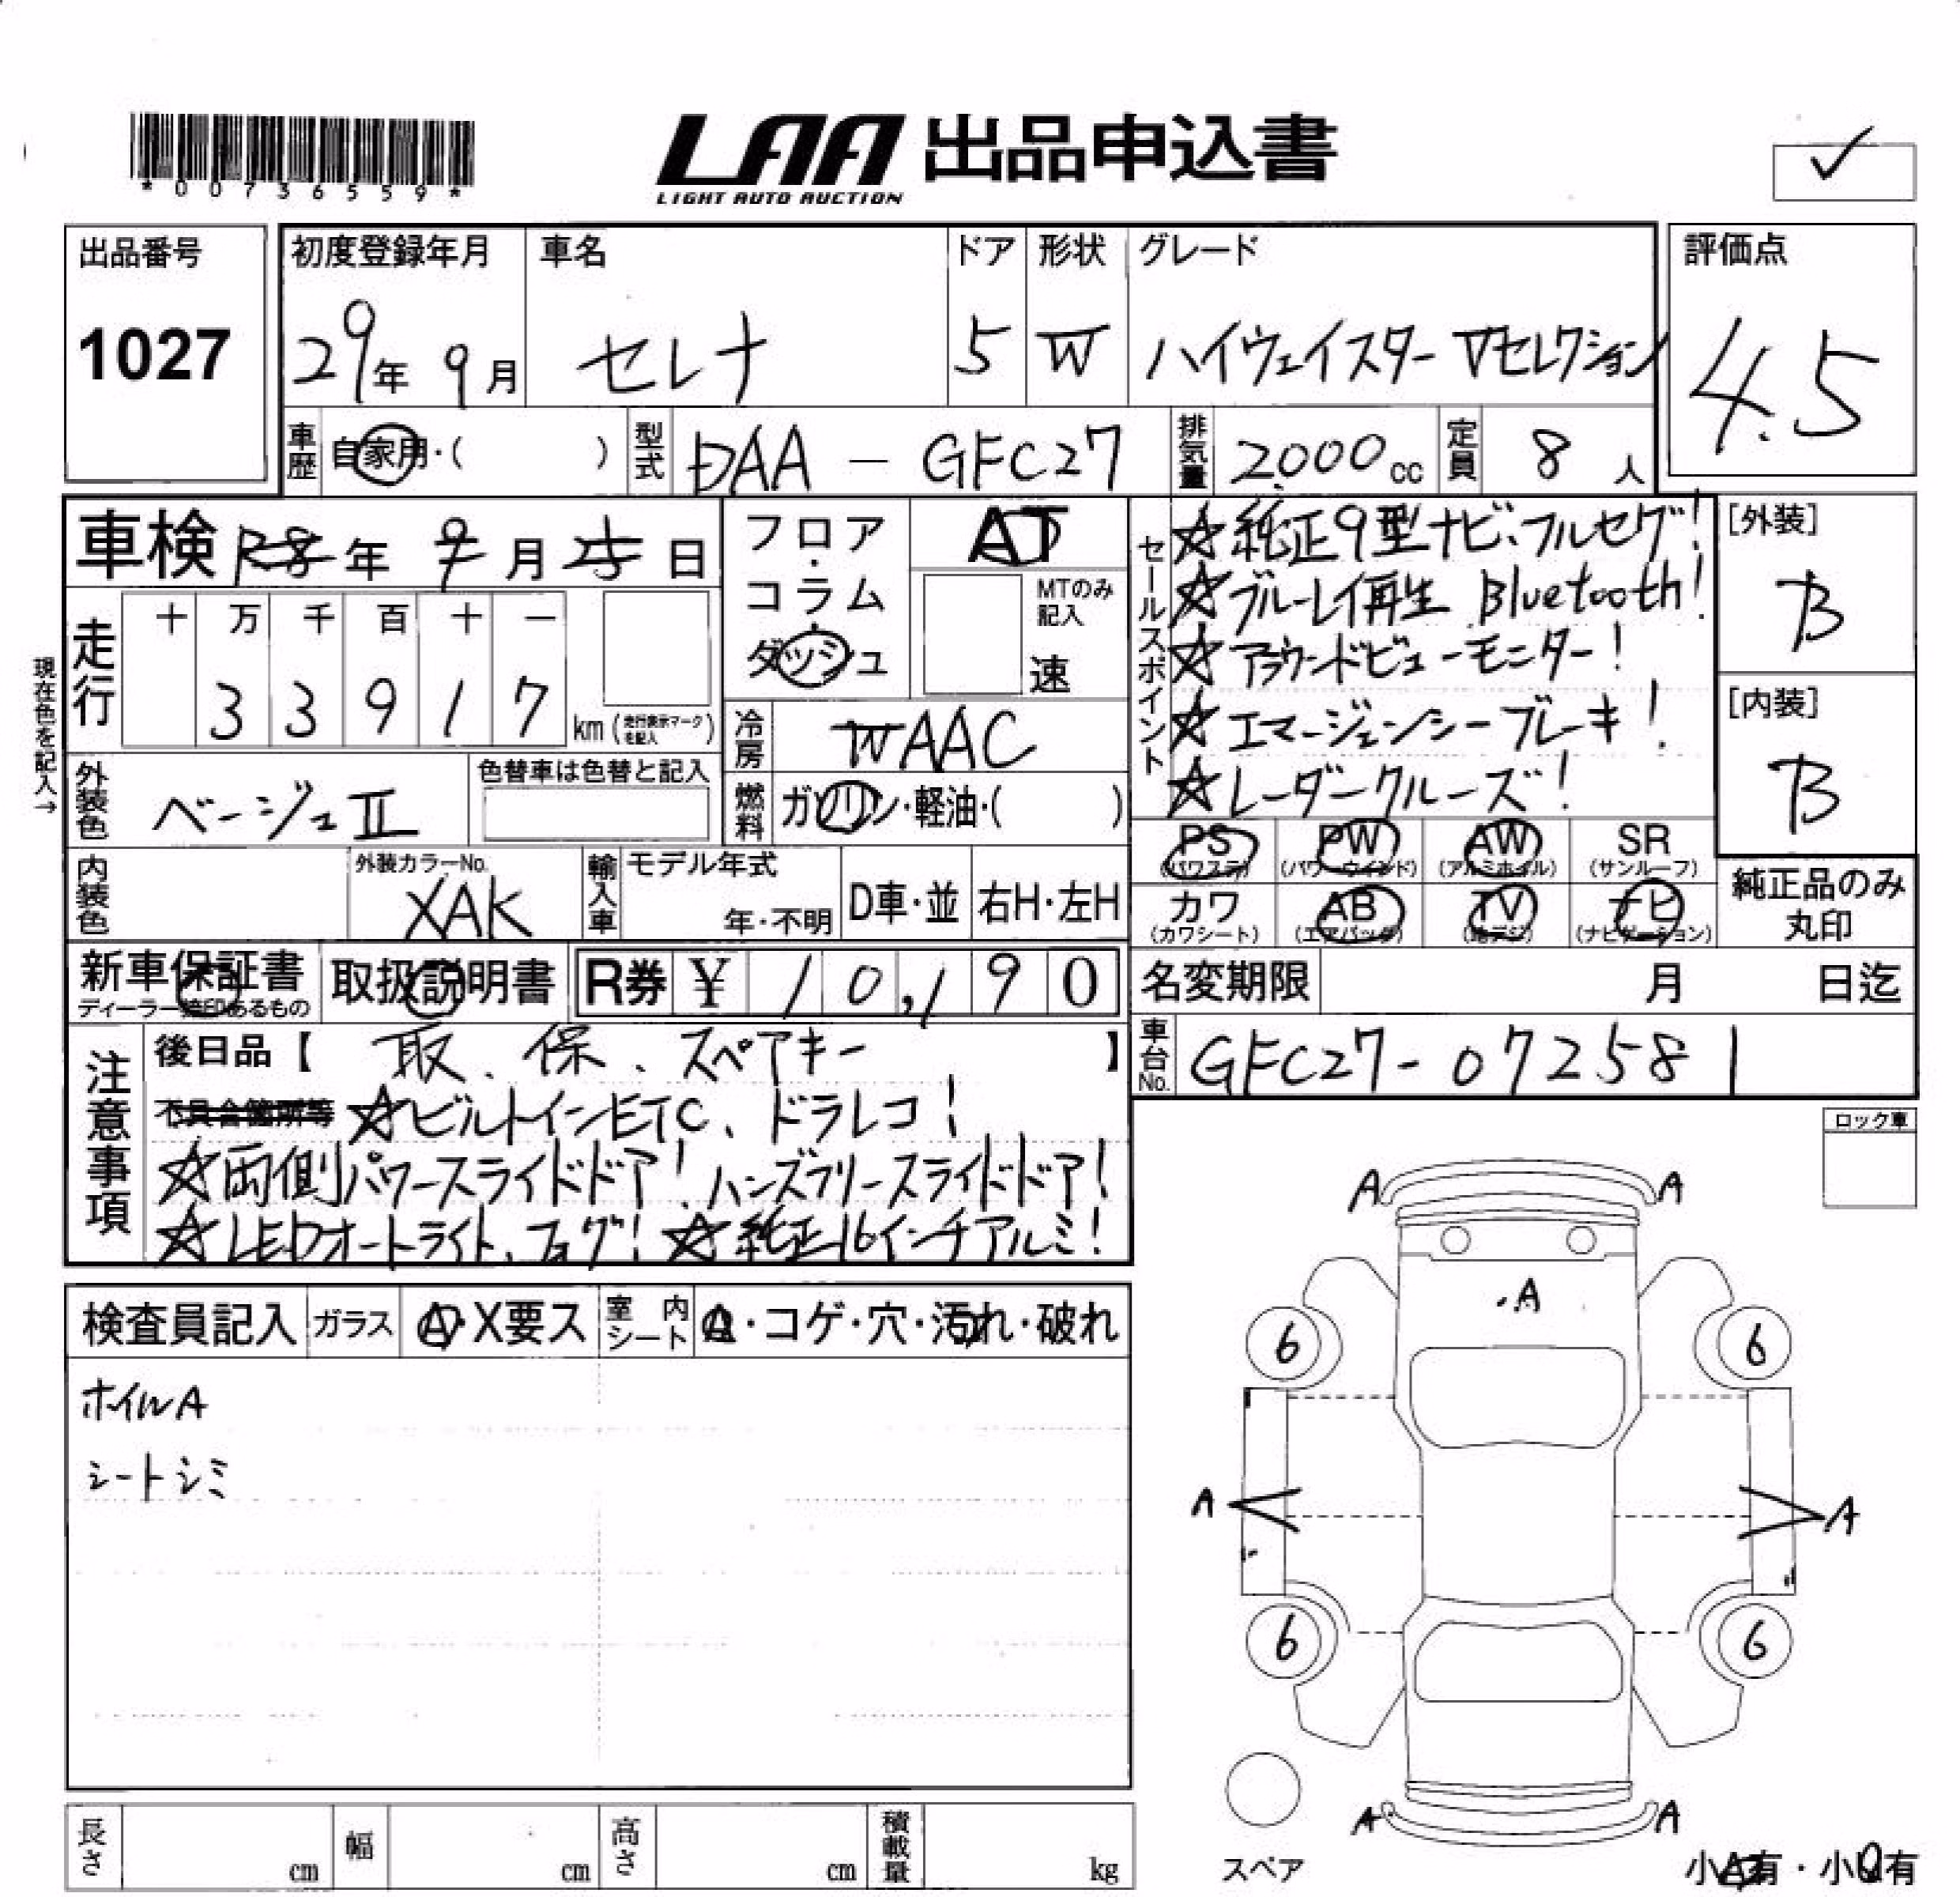 *00736559*
LAA 出品申込書
LIGHT AUTO AUCTION
✓
出品番号
1027
初度登録年月
29年 9月
車名
セレナ
ドア
5
形状
W
グレード
ハイウェイスター Vセレクション
評価点
4.5
車歴
自家用・( )
型式
DAA - GFC27
排気量
2000cc
定員
8人
車検 R8年 9月 25日
走行
十 万 千 百 十 一
3 3 9 1 7
km (走行表示マークを記入)
現在色を記入→
フロア・コラム・ダッシュ
AT
MTのみ記入
速
冷房
WAAC
燃料
ガソリン・軽油・( )
外装色
ベージュⅡ
色替車は色替と記入
内装色
外装カラーNo.
XAK
輸入車
モデル年式
年・不明
D車・並
右H・左H
セールスポイント
☆純正9型ナビ、フルセグ!
☆ブルーレイ再生 Bluetooth!
☆アラウンドビューモニター!
☆エマージェンシーブレーキ!
☆レーダークルーズ!
[外装]
B
[内装]
B
PS (パワステ) PW (パワーウインド) AW (アルミホイル) SR (サンルーフ)
カワ (カワシート) AB (エアバッグ) TV (地デジ) ナビ (ナビゲーション)
純正品のみ丸印
新車保証書
ディーラー捺印あるもの
取扱説明書
R券 ¥ 10,190
名変期限 月 日迄
車台No.
GFC27-072581
注意事項
後日品【 取、保、スペアキー 】
不具合箇所等 ☆ビルトインETC、ドラレコ!
☆両側パワースライドドア! ハンズフリースライドドア!
☆LEDオートライト、フォグ! ☆純正16インチアルミ!
ロック車
検査員記入 ガラス A・X要ス 室内シート ・コゲ・穴・汚れ・破れ
ホイルA
シートシミ
A A
A
6 6
A A
6 6
A A
スペア
小A有・小U有
長さ cm 幅 cm 高さ cm 積載量 kg